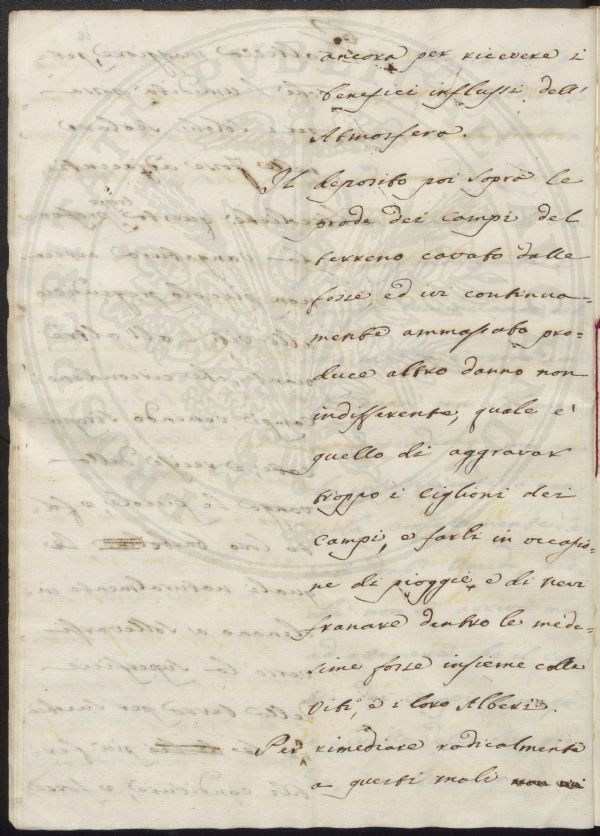 ancora per ricevere i
benefici influssi dell'
Atmosfera.
Il deposito poi sopra le
prode dei campi del
terreno cavato dalle
fosse, ed ivi continua=
mente ammassato pro=
duce altro danno non
indifferente, quale e'
quello di aggravar
troppo i Ciglioni dei
Campi, e farli in occasio
ne di pioggie, e di nevi
franare dentro le mede=
sime fosse insieme colle
Viti, e i loro Alberi.
Per rimediare radicalmente
a questi mali